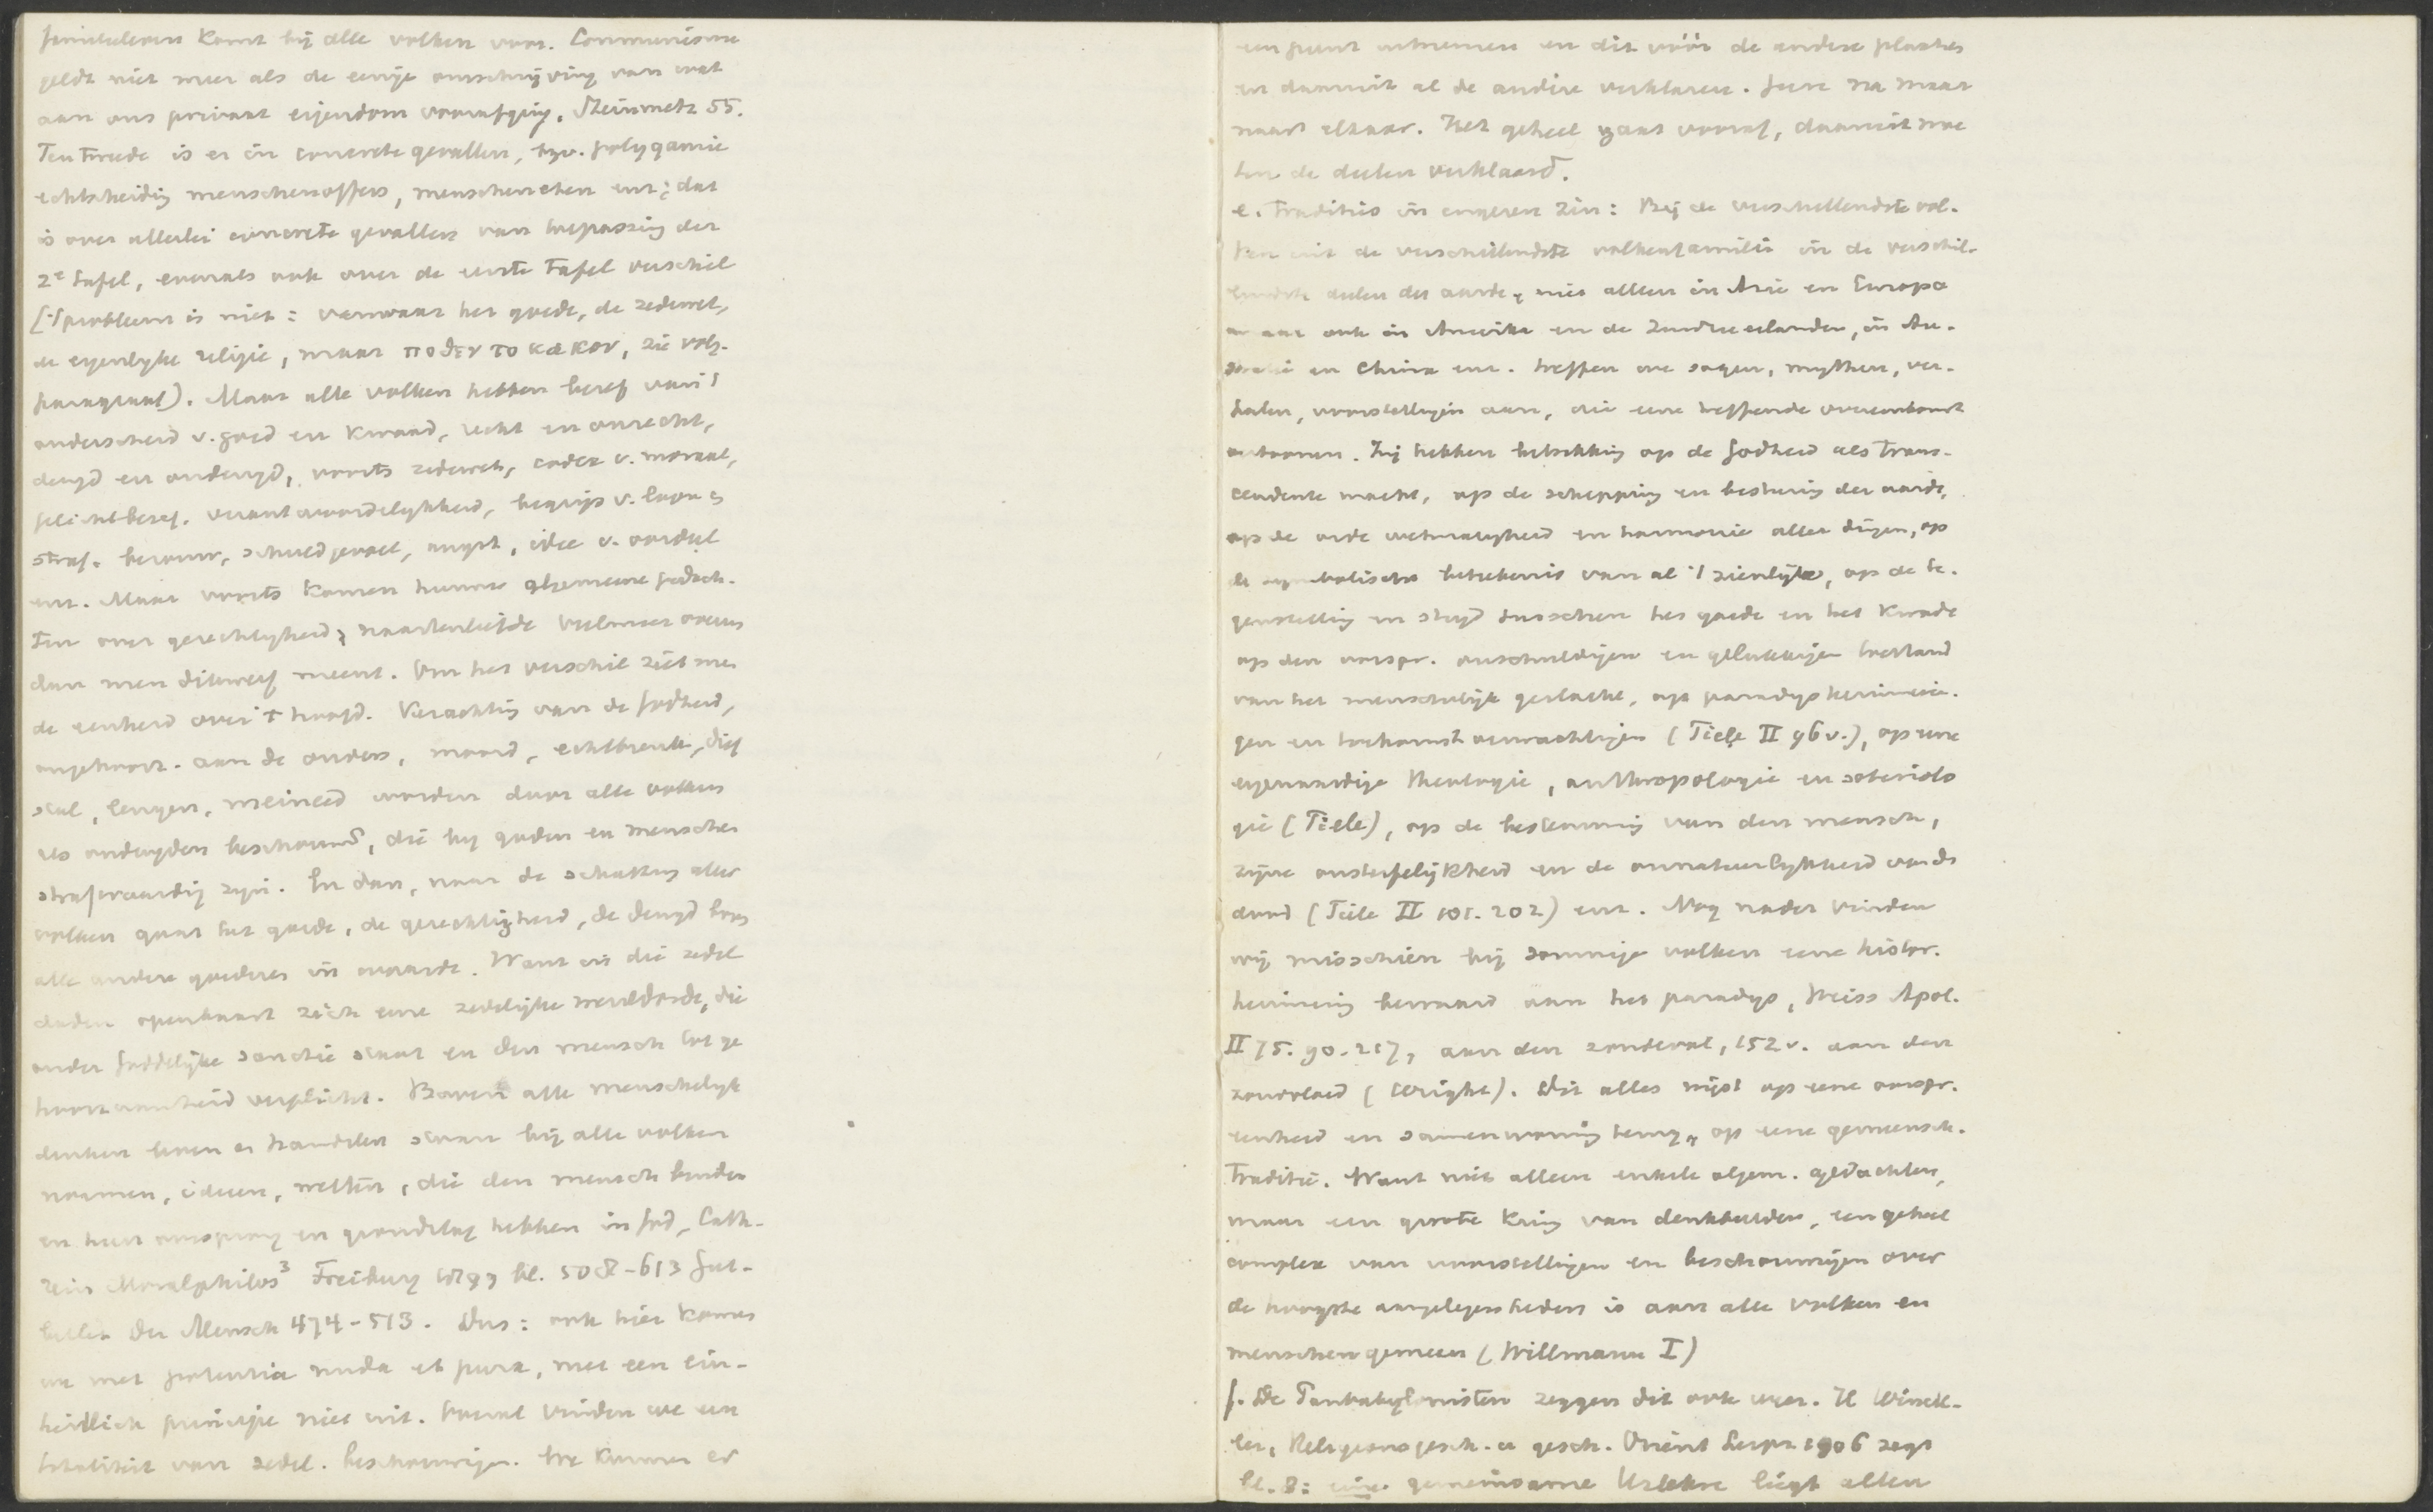 familieleven komt bij alle volken voor. Communisme
geldt niet meer als de eenige omschrijving van wat
aan ons privaat eigendom voorafging, Steinmetz 55.
Ten tweede is er in concrete gevallen, bzv. polygamie
echtscheidig menschenoffers, menschen eten enz; dat
is over allerlei concrete gevallen van toepassing der
2e tafel, evenals ook over de eerste tafel verschil
('t probleem is niet: vanwaar het goede, de zedewet,
de eigenlyke religie, maar ποθεν το κακον, zie volg.
paragraaf). Maar alle volken hebben besef van 't
onderscheid v. goed en kwaad, recht en onrecht,
deugd en ondeugd, voorts zedewet, codex v. moraal,
plichtbesef. verantwoordelykheid, begrip v. loon en
straf. berouw, schuldgevoel, angst, idee v. oordeel
enz. Maar voorts komen hunne algemeene gedach-
ten over gerechtigheid, naastenliefde veelmeer overeen
dan men dikwerf meent. Om het verschil ziet men
de eenheid over 't hoofd. Verachting van de Godheid,
ongehoorz. aan de ouders, moord, echtbreuk, dief
stal, leugen, meineed worden door alle volken
als ondeugden beschouwd, die by goden en menschen
strafwaardig zyn. En dan, naar de schatting aller
volken gaat het goede, de gerechtigheid, de deugd boven
alle andere goederen in waarde. Want in die zedel
daden openbaart zich eene zedelijke wereldorde, die
onder Goddelijke sanctie staat en den mensch tot ge
hoorzaamheid verplicht. Boven alle menschelyk
denken leven en handelen staan bij alle volken
normen, ideeen, wetten, die den mensch binden
en hun oorsprong en grondslag hebben in God, Cath-
rein Moralphilos³ Freiburg 1899 bl. 508-613 Gut-
berlet Der Mensch 474-513. Dus: ook hier komen
we met potentia nuda et pura, met een ein-
heitlich principe niet uit. Overal vinden we een
totaliteit van zedel. beschouwingen. We kunnen er
een punt uitnemen en dit vóór de andere plaatsen
en daaruit al de andere verklaren. Geen na maar
naast elkaar. Het geheel gaat vooraf, daaruit moe
ten de deelen verklaard.
e. Traditie in engeren zin: Bij de verschillendste vol-
ken uit de verschillendste volkenfamilie in de verschil-
lendste deelen der aarde, niet alleen in Azie en Europa
maar ook in Amerika en de Zuidzee eilanden, in Au-
stralie en China enz. treffen we sagen, mythen, ver-
halen, voorstellingen aan, die eene treffende overeenkomst
vertoonen. Zij hebben betrekking op de Godheid als trans-
cendente macht, op de schepping en besturing der aarde,
op de orde wetmatigheid en harmonie aller dingen, op
de symbolische beteekenis van al 't zienlijke, op de te-
genstelling en strijd tusschen het goede en het kwade
op den oorspr. onschuldigen en gelukkigen toestand
van het menschelijk geslacht, op paradysherinnerin-
gen en toekomstverwachtingen (Tiele II 96 v.), op eene
eigenaardige theologie, anthropologie en soteriolo
gie (Tiele), op de bestemming van den mensch,
zijne onsterfelijkheid en de onnatuurlykheid van de
dood (Tiele II 101. 202) enz. Nog nader vinden
wij misschien bij sommige volken eene histor.
herinnering bewaard aan het paradys, Weiss Apol.
II 75. 90. 217, aan den zondeval, 152 v. aan den
zondvloed (Wright). Dit alles wijst op eene oorspr.
eenheid en samenwoning terug, op eene gemeensch.
Traditie. Want niet alleen enkele algem. gedachten,
maar een groote kring van denkbeelden, een geheel
complex van voorstellingen en beschouwingen over
de hoogste aangelegenheden is aan alle volken en
menschen gemeen (Willmann I)
f. De Panbabylonisten zeggen dit ook weer. H Winck-
ler, Religionsgesch. u gesch. Orient Leipz 1906 zegt
bl. 8: eine gemeinsame Urlehre liegt allen